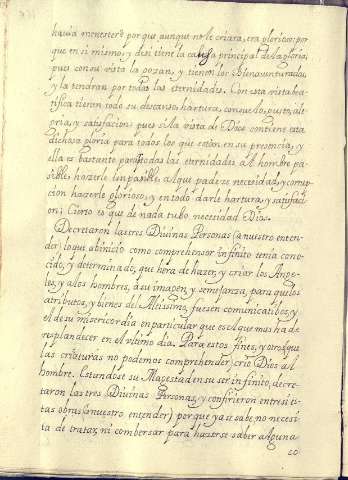 hauia menester: por que aunque no le criara, era glorioso: por
que en si mismo, y desi tiene la causa principal de la gloria,
pues con su vista la gozan, y tienen los Bienauenturados,
y la tendran por todas las eternidades. Con esta vista bea-
tifica tienen todo su descanso, hartura, consuelo, gusto, ale-
gria, y satisfacion: pues si la vista de Dios contiene esta
dichosa gloria para todos los que estan en su presencia, y
ella es bastante para todas las eternidades al hombre pa-
sible hazerle impasible, al que padeze necesidad, y corrup-
cion hazerle glorioso, y en todo darle hartura, y satisfaci-
on; Cierto es que de nada tubo necesidad Dios.
Decretaron las tres Diuinas Personas (a nuestro enten-
der) lo que abinitio como comprehensor infinito tenia cono-
cido, y determinado, que hera de hazer, y criar los Ange-
les, y a los hombres, a su imagen, y semejanza, para que los
atributos, y bienes del Altissimo fuesen comunicables, y
el de su misericordia en particular que es el que mas ha de
resplandecer en el vltimo dia. Para estos fines, y otros que
las criaturas no podemos comprehender, crio Dios al
hombre. Estandose su Magestad en su ser infinito, decre-
taron las tres Diuinas Personas, y confirieron entre si es-
tas obras (a nuestro entender) porque ya se sabe no necesi-
ta de tratar, ni combersar para hazerse saber alguna
co